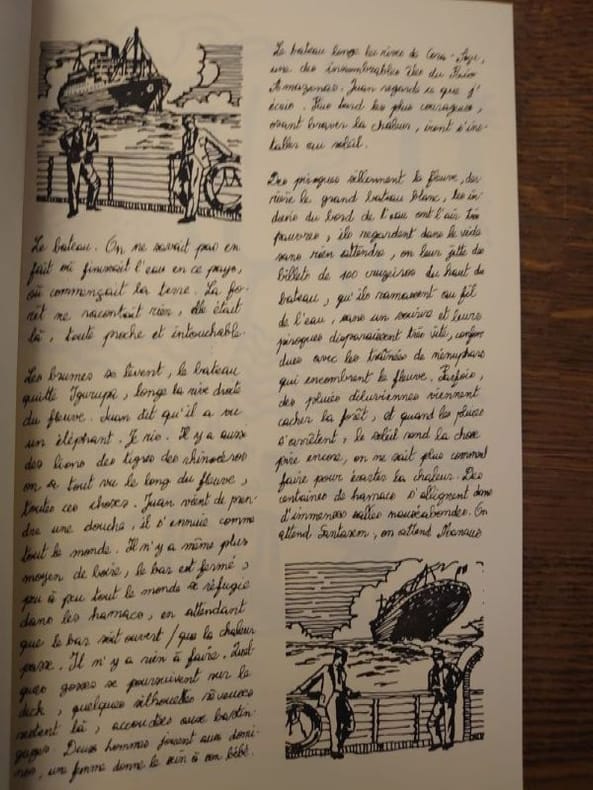 Le bateau. On ne savait pas en
fait où finissait l'eau en ce pays,
où commençait la terre. La fo-
rêt ne racontait rien, elle était
là, toute proche et intouchable.
Les brumes se lèvent, le bateau
quitte Igurupa, longe la rive droite
du fleuve. Juan dit qu'il a vu
un éléphant. Je ris. Il y a aussi
des lions des tigres des rhinocéros
on a tout vu le long du fleuve,
toutes ces choses. Juan vient de pren-
dre une douche, il s'ennuie comme
tout le monde. Il n'y a même plus
moyen de boire, le bar est fermé,
peu à peu tout le monde se réfugie
dans les hamacs, en attendant
que le bar soit ouvert / que la chaleur
passe. Il n'y a rien à faire. Quel-
ques gosses se poursuivent sur le
deck, quelques silhouettes rêveuses
restent là, accoudées aux bastin-
gages. Deux hommes jouent aux domi-
nos, une femme donne le sein à son bébé.
Le bateau longe les rives de
une des innombrables îles du
Amazonas. Juan regarde ce que j'
écris. Plus tard les plus courageux,
osant braver la chaleur, iront s'ins-
taller au soleil.
Des pirogues sillonnent le fleuve, der-
rière le grand bateau blanc, les in-
diens du bord de l'eau ont l'air très
pauvres, ils regardent dans le vide
sans rien attendre, on leur jette des
billets de 100 cruzeiros du haut du
bateau, qu'ils ramassent au fil
de l'eau, sans un sourire et leurs
pirogues disparaissent très vite, confon-
dues avec les traînées de nénuphars
qui encombrent le fleuve. Parfois,
des pluies déluviennes viennent
cacher la forêt, et quand les pluies
s'arrêtent, le soleil rend la chose
pire encore, on ne sait plus comment
faire pour écarter la chaleur. Des
centaines de hamacs s'alignent dans
d'immenses salles nauséabondes. On
attend Santarem, on attend Manaus